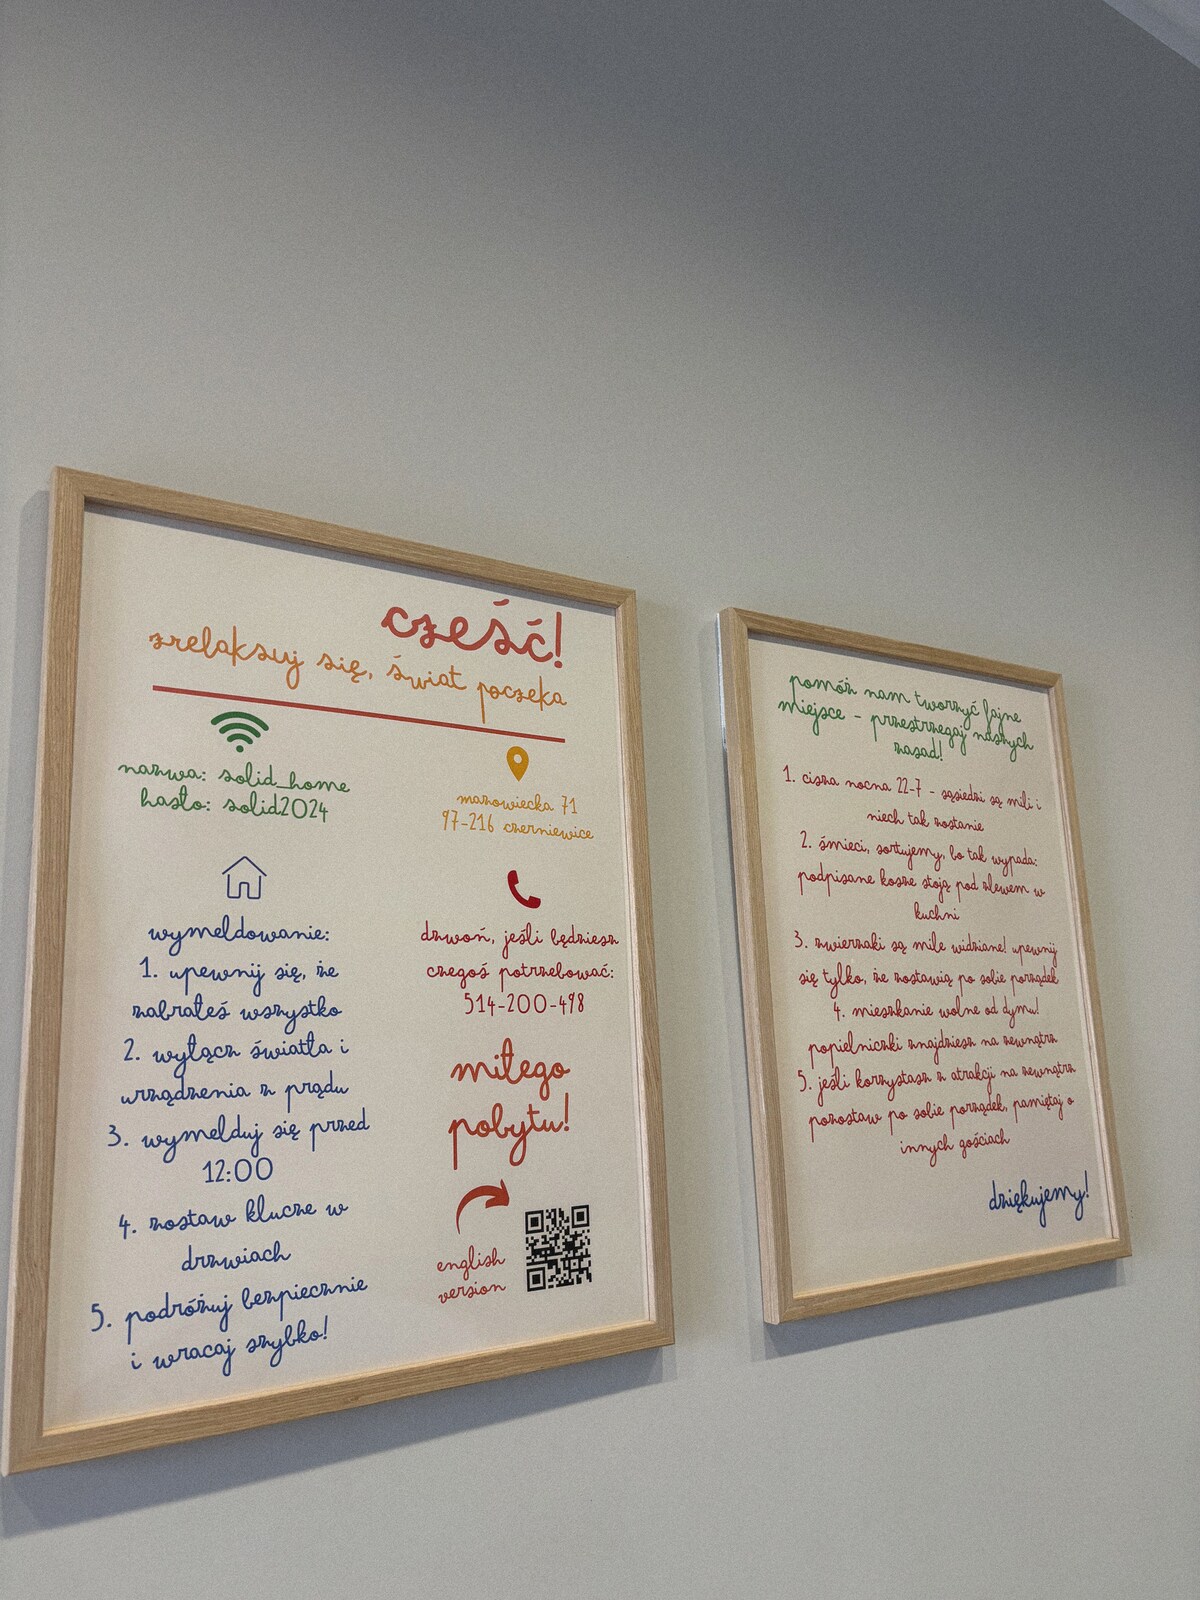 cześć!
zrelaksuj się, świat poczeka
nazwa: solid_home
hasło: solid2024
mazowiecka 71
97-216 czerniewice
wymeldowanie:
1. upewnij się, że
zabrałeś wszystko
2. wyłącz światła i
urządzenia z prądu
3. wymelduj się przed
12:00
4. zostaw klucze w
drzwiach
5. podróżuj bezpiecznie
i wracaj szybko!
dzwoń, jeśli będziesz
czegoś potrzebować:
514-200-498
miłego
pobytu!
english
version
pomóż nam tworzyć fajne
miejsce - przestrzegaj naszych
zasad!
1. cisza nocna 22-7 - sąsiedzi są mili i
niech tak zostanie
2. śmieci, sortujemy, bo tak wypada:
podpisane kosze stoją pod zlewem w
kuchni
3. zwierzaki są mile widziane! upewnij
się tylko, że zostawią po sobie porządek
4. mieszkanie wolne od dymu!
popielniczki znajdziesz na zewnątrz
5. jeśli korzystasz z atrakcji na zewnątrz
pozostaw po sobie porządek, pamiętaj o
innych gościach
dziękujemy!